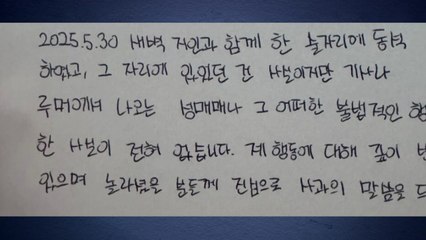 2025.5.30 새벽 지인과 함께 한 술자리에 동석
하였고, 그 자리에 있었던 건 사실이지만 기사나
루머에서 나오는 성매매나 그 어떠한 불법적인 행
한 사실이 전혀 없습니다. 제 행동에 대해 깊이 반
있으며 놀라셨을 분들께 진심으로 사과의 말씀을 드